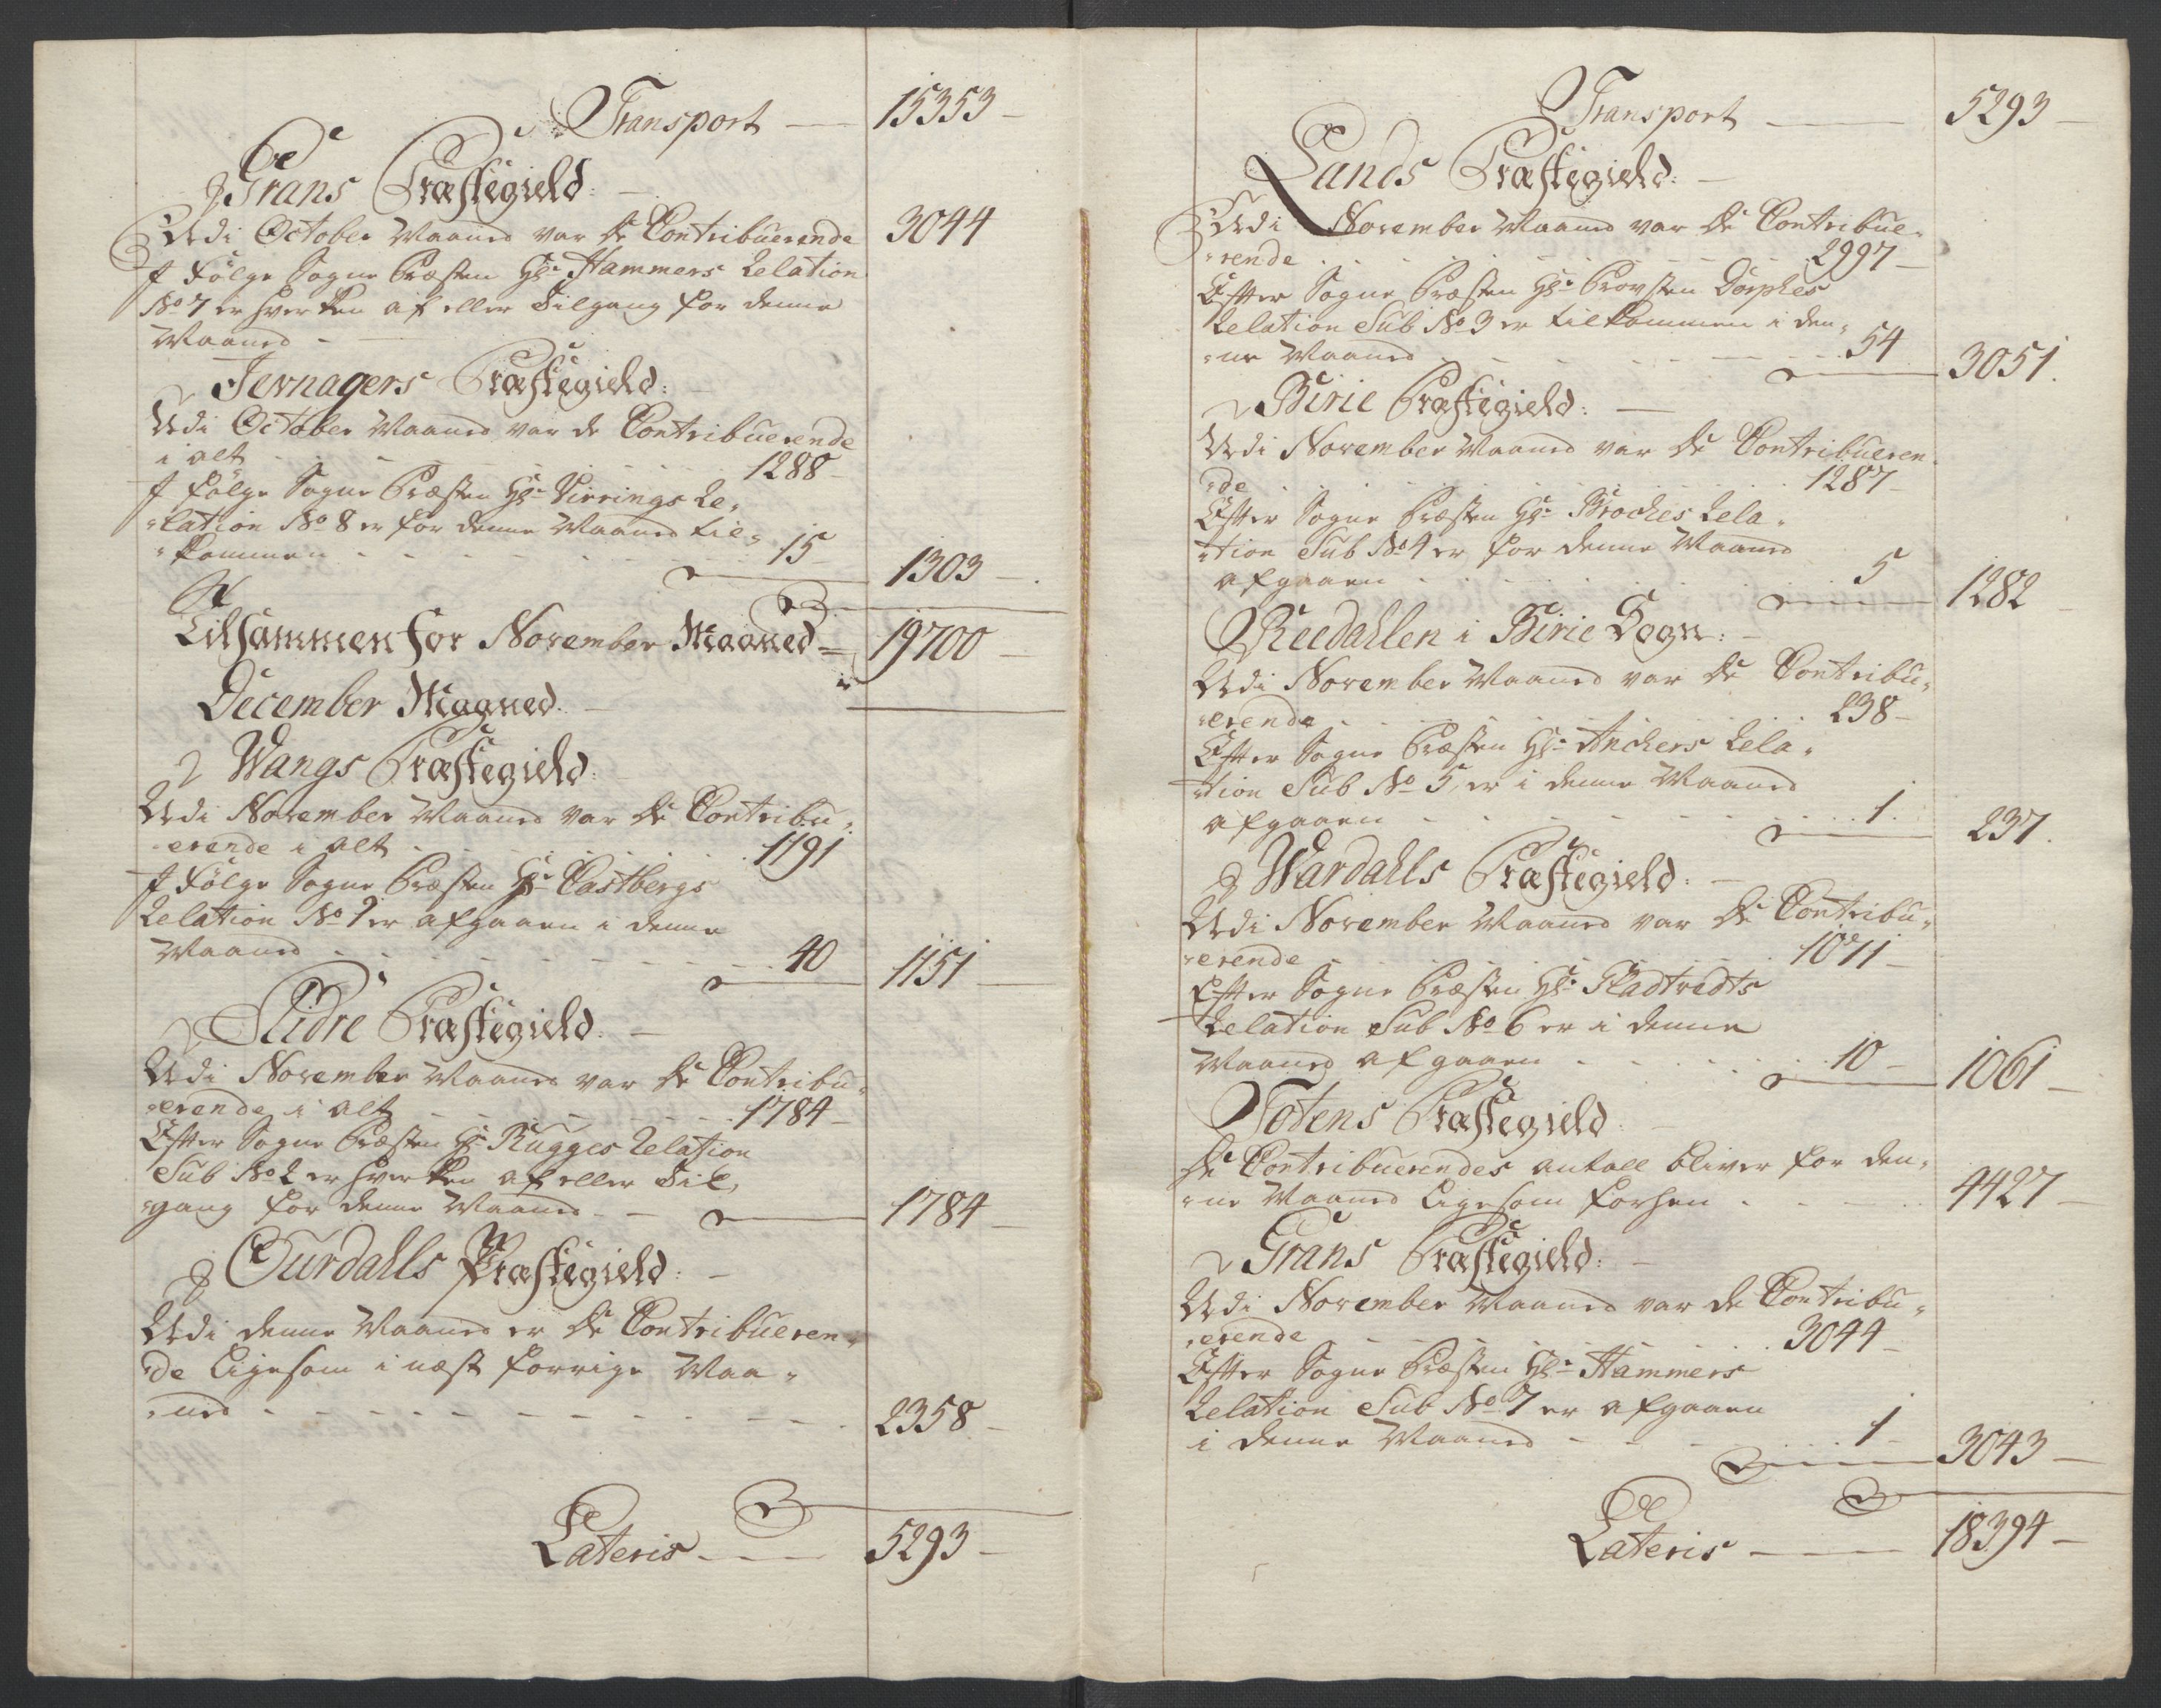 Transport — 15353 —
Grans Præstegield: —
Udi October Maaned var de Contribuerende 3044
I Følge Sogne Præsten Hr: Hammers Relation
No 7 er hverken af eller Tilgang for denne
Maaned —
Jevnagers Præstegield: —
Udi October Maaned var de Contribuerende
i alt 1288 —
I følge Sogne Præsten Hr: Virrings Re-
lation No 8 er for denne Maaned til-
kommen 15 — 1303 —
Tilsammen for November Maaned = 19700 —
December Maaned. —
Wangs Præstegield: —
Udi November Maaned var de Contribu-
erende i alt 1191
I Følge Sogne Præsten Hr: Castbergs
Relation No 1 er afgaaen i denne
Maaned 40 1151 —
Slidre Præstegield: —
Udi November Maaned var de Contribu-
erende i alt 1784 —
Efter Sogne Præsten Hr: Rugges Relation
Sub No 2 er hverken af eller Til-
gang for denne Maaned 1784 —
Ourdahls Præstegield: —
Udi denne Maaned er de Contribueren-
de ligesom i næst forrige Maa-
ned 2358 —
Lateris — 5293 —
Transport — 5293 —
Lands Præstegield: —
Udi November Maaned var de Contribue-
rende 2997 —
Efter Sogne Præsten Hr: Provsten Dorphes
Relation Sub No 3 er tilkommen i den-
ne Maaned 54 3051.
Birie Præstegield: —
Udi November Maaned var de Contribueren-
de 1287 —
Efter Sogne Præsten Hr: Broches Rela-
tion Sub No 4 er for denne Maaned
afgaaen 5 1282 —
Reedahlen i Birie Sogn: —
Udi November Maaned var de Contribu-
erende 238 —
Efter Sogne Præsten Hr: Anchers Rela-
tion Sub No 5 er i denne Maaned
afgaaen 1. 237.
Wardahls Præstegield: —
Udi November Maaned var de Contribu-
erende 1071 —
Efter Sogne Præsten Hr:
Relation Sub No 6 er i denne
Maaned afgaaen 10 — 1061 —
Totens Præstegield: —
De Contribuerendes antall bliver for den-
ne Maaned ligesom forhen 4427 —
Grans Præstegield: —
Udi November Maaned var de Contribu-
erende 3044 —
Efter Sogne Præsten Hr: Hammers
Relation Sub No 7 er afgaaen
i denne Maaned 1 — 3043 —
Lateris — 18394 —